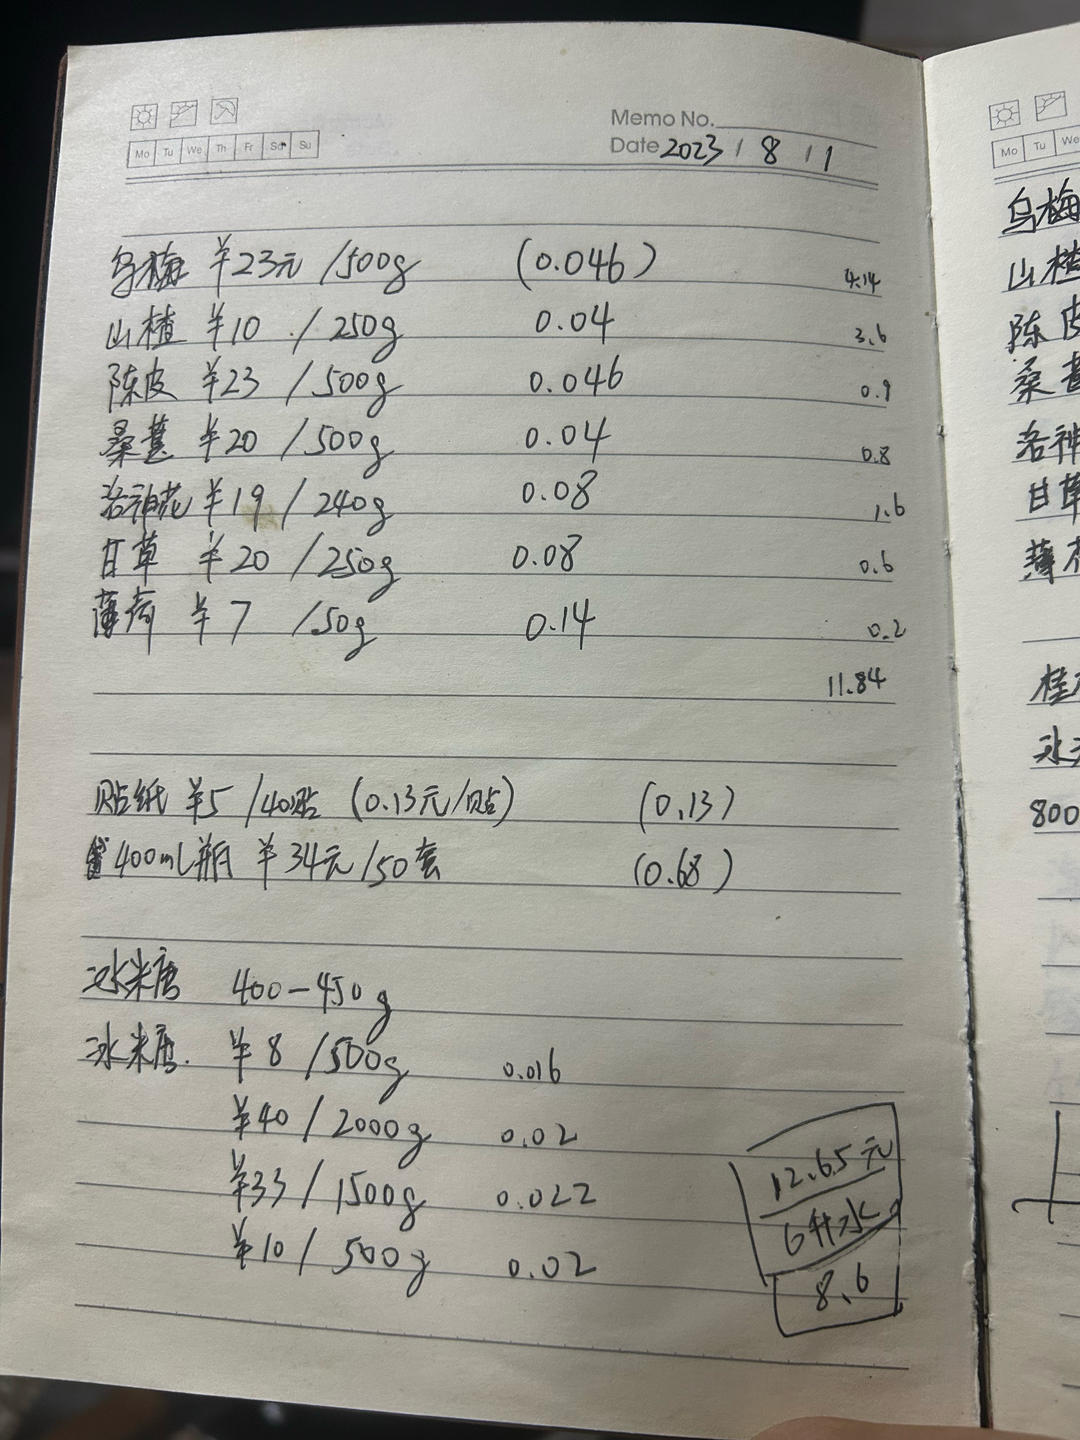 Memo No.
Date 2023 / 8 / 1
Mo Tu We Th Fr Sa Su
乌梅 ¥23元 /500g (0.046) 4.14
山楂 ¥10 / 250g 0.04 3.6
陈皮 ¥23 / 500g 0.046 0.9
桑葚 ¥20 / 500g 0.04 0.8
洛神花 ¥19 / 240g 0.08 1.6
甘草 ¥20 / 250g 0.08 0.6
薄荷 ¥7 / 50g 0.14 0.2
11.84
贴纸 ¥5 / 40贴 (0.13元/贴) (0.13)
400mL瓶 ¥34元 /50套 (0.68)
冰糖 400-450g
冰糖. ¥8 / 500g 0.016
¥40 / 2000g 0.02
¥33 / 1500g 0.022
¥10 / 500g 0.02
12.65元
6升水
8.6
Mo Tu We
乌梅
山楂
陈皮
桑葚
洛神
甘草
薄
桂
冰
800